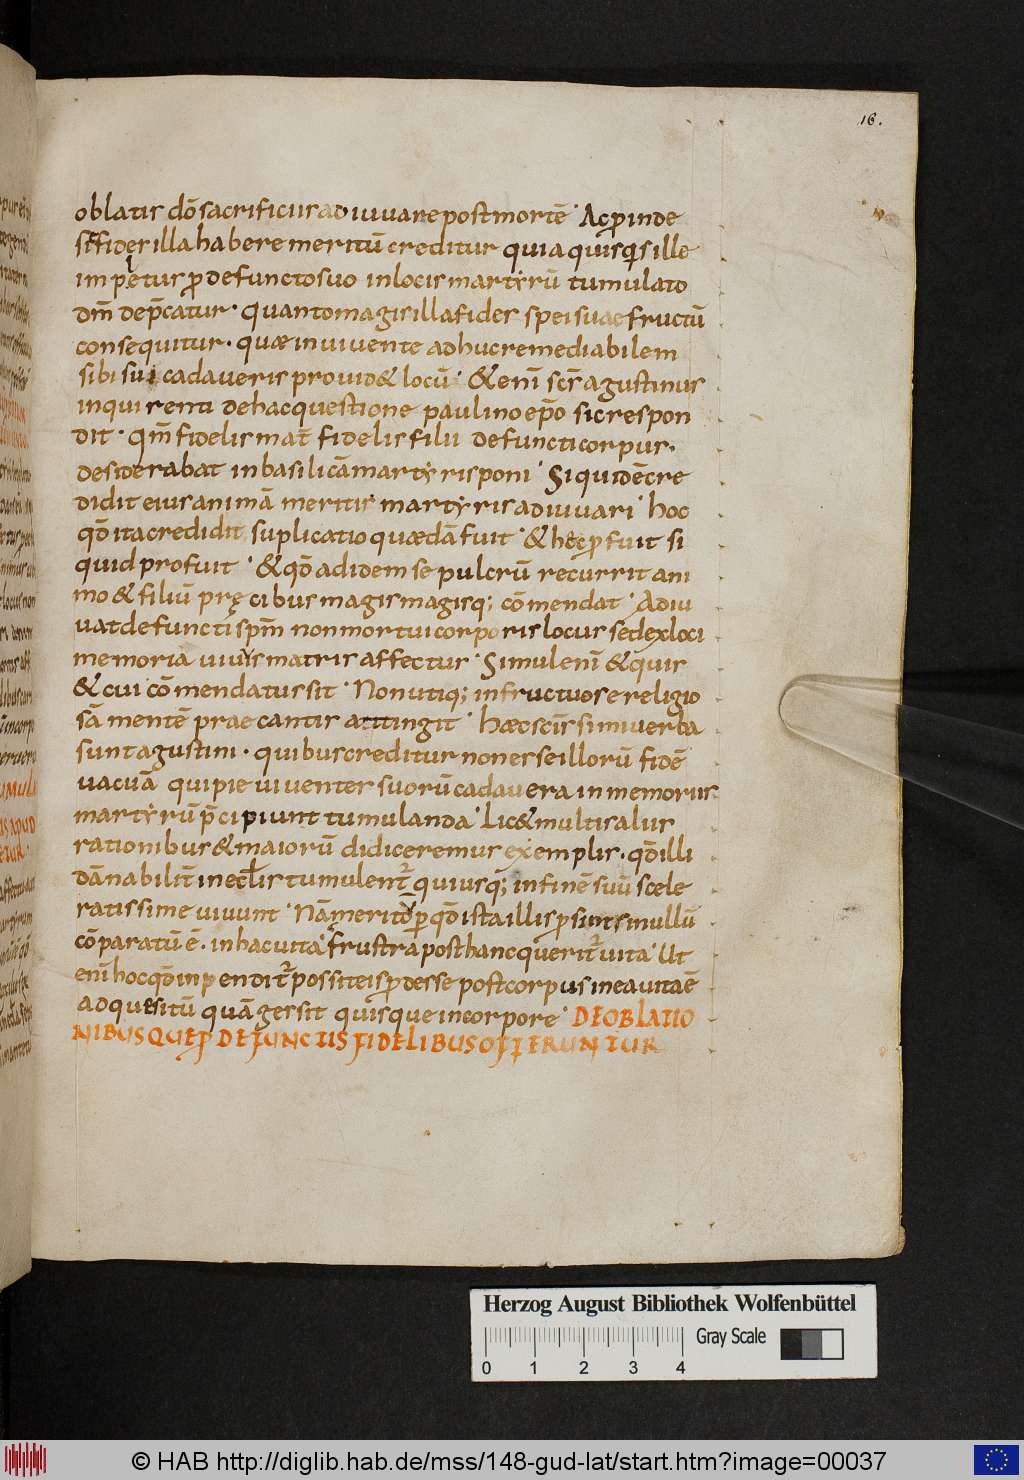 16.
oblatis dō sacrificiis adiuuare post mortē · Ac ꝓinde
si fides illa habere meritū creditur quia quisq̇s ille
impetus ꝓ defuncto suo in locis martyrū tumulato
dm̄ dep̄catur · quanto magis illa fides spei suae fructū
consequitur · quae in uiuente adhuc remediabilem
sibi sui cadaueris prouid& locū · &enī sc̄s agustinus
inquirenti de hac questione paulino ep̄o sic respon
dit · qm̄ fidelis mat̄ fidelis filii defuncti corpus ·
desiderabat in basilicā martyris poni · Siquidē cre
didit eius animā meritis martyris adiuuari · hoc
qđ ita credidit suplicatio quaedā fuit · & hęc ꝓfuit si
quid profuit · & qđ ad idem sepulcrū recurrit ani
mo & filiū pręcibus magis magisq; cōmendat · Adiu
uat defuncti sp̄m non mortui corporis locus sed ex loci
memoria uiuus matris affectus · Simul enī & quis
& cui cōmendatus sit · Non utiq; infructuose religio
sā mentē praecantis attingit · haec scīssimi uerba
sunt agustini · quibus creditur non esse illorū fidē
uacuā qui pie uiuentes suorū cadauera in memoriis
martyrū p̄cipiunt tumulanda · Lic& multis aliis
rationibus & maiorū didiceremus exemplis · qđ illi
dānabilit̄ in ecl̄is tumulent̄ quiusq; in finē suū scele
ratissime uiuunt · Nā merito ꝑqđ ista illis ꝓsunt si nullū
cōparatū ē · in hac uita frustra post hanc querit̄ uita · Ut
enī hoc qđ inpendit̄ possit eis ꝓdesse post corpus in ea uita ē
adquesitū quā gessit quisque in corpore · DE OBLATIO
NIBUS QUE Ꝓ DEFUNCTIS FIDELIBUS OFFERUNTUR
Herzog August Bibliothek Wolfenbüttel
Gray Scale
0 1 2 3 4
© HAB http://diglib.hab.de/mss/148-gud-lat/start.htm?image=00037